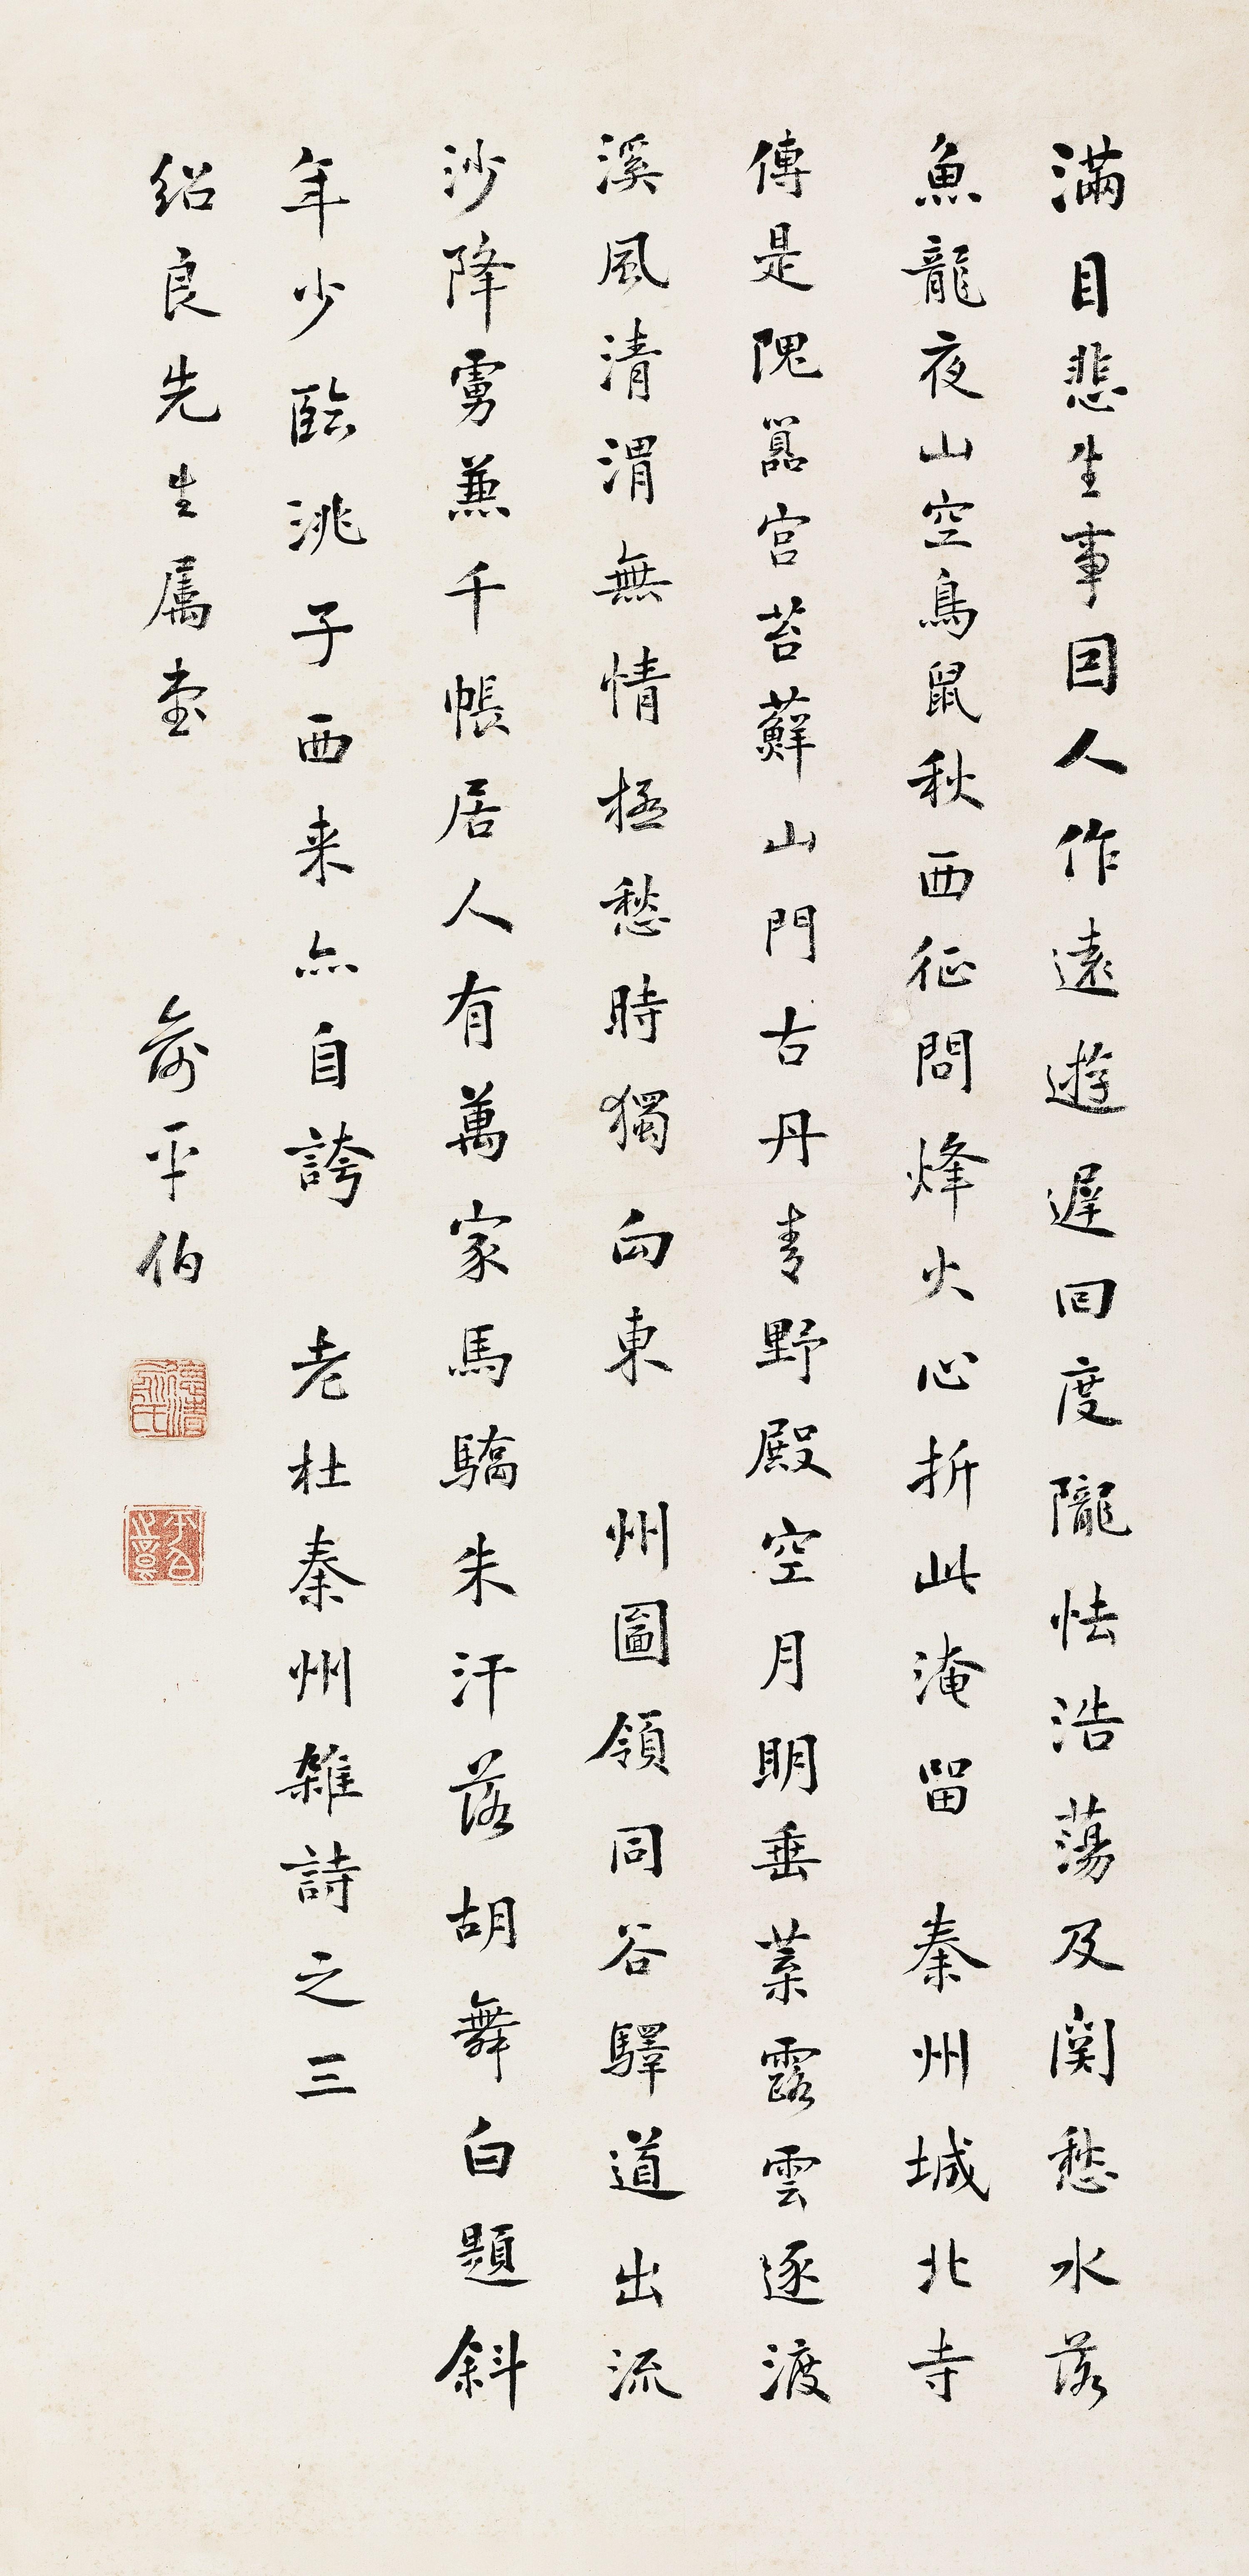 滿目悲生事因人作遠遊遲回度隴怯浩蕩及関愁水落
魚龍夜山空鳥鼠秋西征問烽火心折此淹留 秦州城北寺
傳是隗囂宮苔蘚山門古丹青野殿空月明垂葉露雲逐渡
溪風清渭無情極愁時獨向東 州圖領同谷驛道出流
沙降虜兼千帳居人有萬家馬驕朱汗落胡舞白題斜
年少臨洮子西来亦自誇 老杜秦州雜詩之三
紹良先生属書
俞平伯
德清俞氏
平伯之章